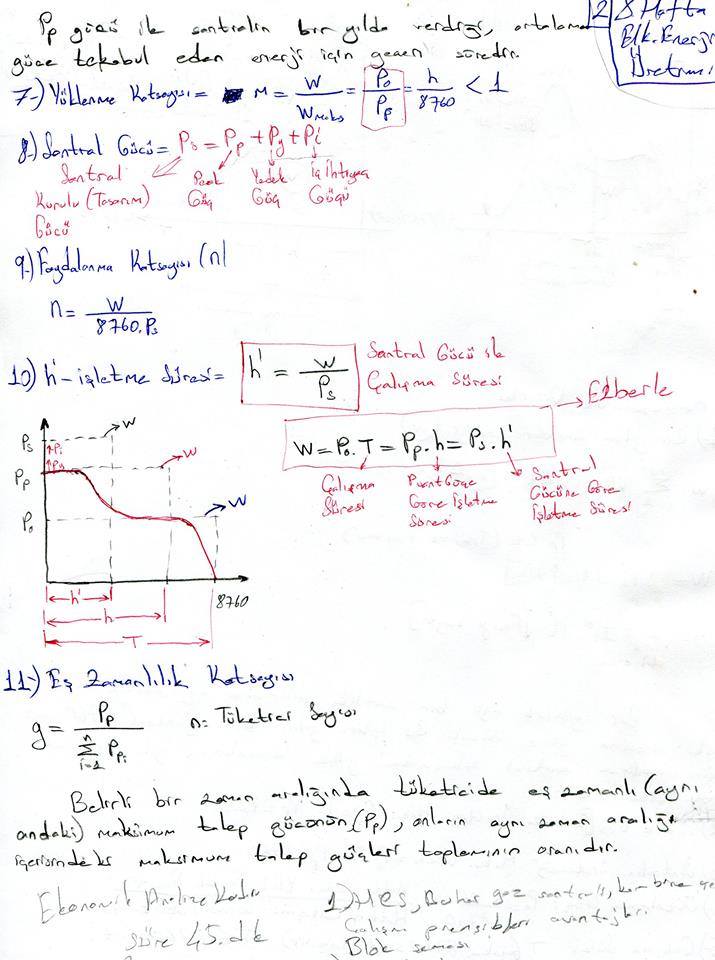 Pp gücü ile santralin bir yılda verdiği, ortalama
güce tekabul eden enerji için geçen süredir.
2 8 Hafta
Elk. Enerji
Üretimi
7-) Yüklenme Katsayısı = m = W / Wmaks = Po / Pp = h / 8760 < 1
8-) Santral Gücü = Ps = Pp + Py + Pi
Santral
Kurulu (Tasarım)
Gücü
Peak
Güç
Yedek
Güç
İç İhtiyaç
Gücü
9-) Faydalanma Katsayısı (n)
n = W / 8760.Ps
10-) h' - işletme Süresi = h' = W / Ps
Santral Gücü ile
Çalışma Süresi
Ezberle
W = Po.T = Pp.h = Ps.h'
Çalışma
Süresi
Puant Güçe
Göre İşletme
Süresi
Santral
Gücüne Göre
İşletme Süresi
Ps
Pi
Py
Pp
Po
W
W
W
8760
h'
h
T
11-) Eş Zamanlılık Katsayısı
g = Pp / n Σ i=1 Ppi
n = Tüketici Sayısı
Belirli bir zaman aralığında tüketicide eş zamanlı (aynı
andaki) maksimum talep gücünün (Pp), onların aynı zaman aralığı
içerisindeki maksimum talep güçleri toplamının oranıdır.
Ekonomik Analize Kadar
Süre 45.dk
1) HES, Buhar gaz santrali, kombine
Çalışma prensibleri avantajları
Blok şeması